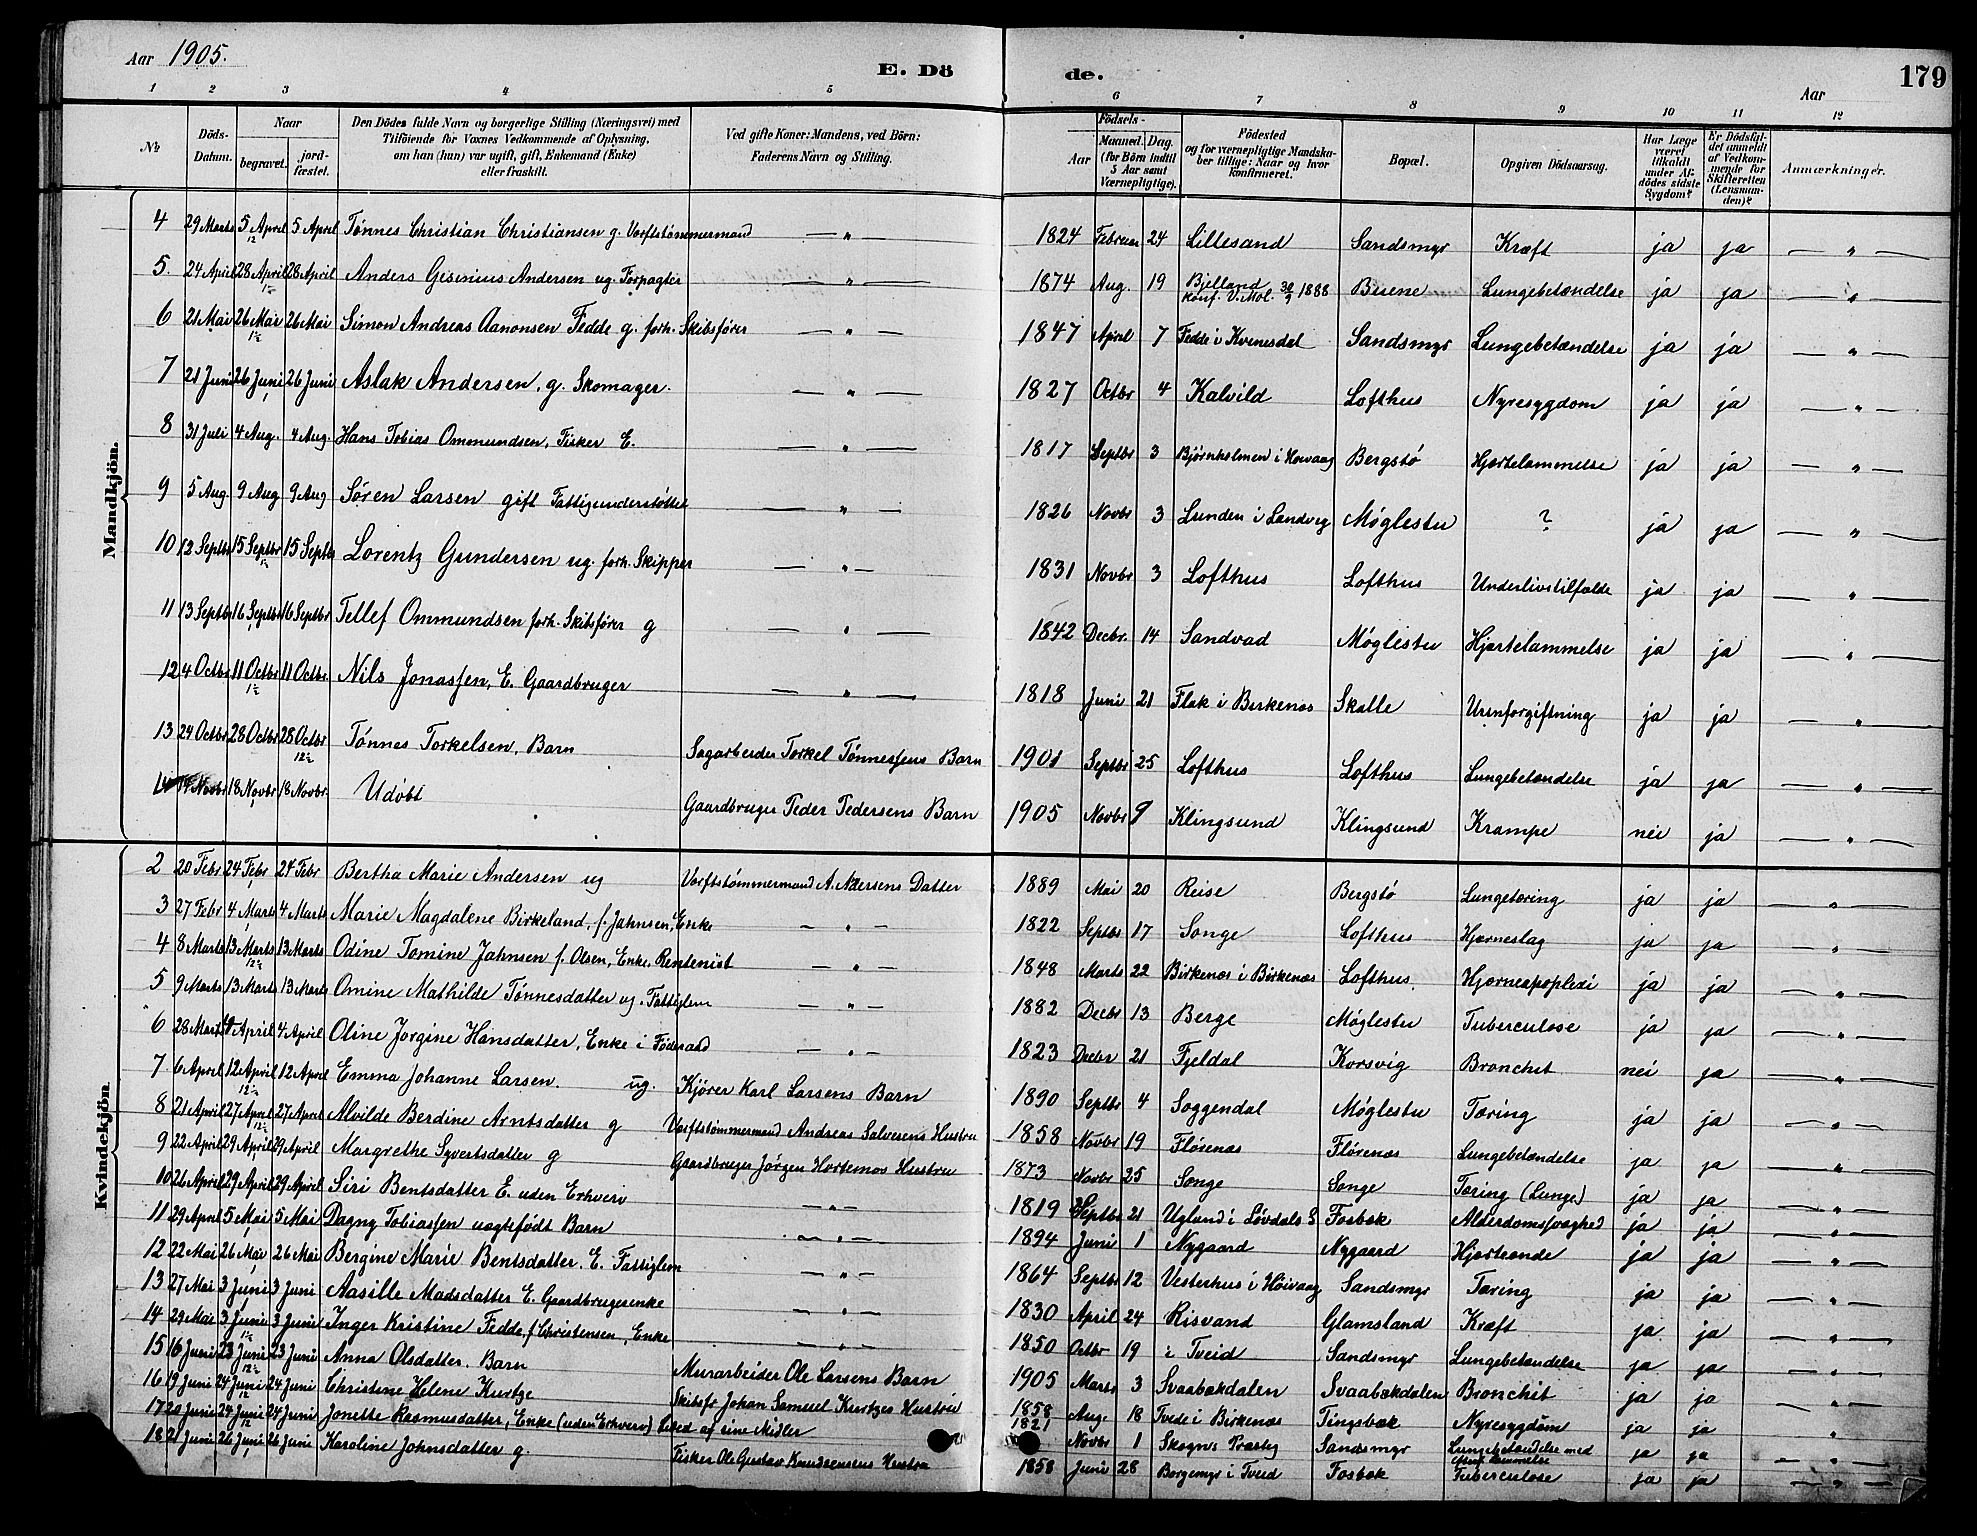 Aar 1905.
E. Dö de.
179
Aar
1 2 3 4 5 6 7 8 9 10 11 12
№
Döds-Datum.
Naar
begravet.
jord-fæstet.
Den Dödes fulde Navn og borgerlige Stilling (Næringsvei) med
Tilföiende for Voxnes Vedkommende af Oplysning,
om han (hun) var ugift, gift, Enkemand (Enke)
eller fraskilt.
Ved gifte Koner: Mandens, ved Börn:
Faderens Navn og Stilling.
Födsels-
Aar
Maaned. Dag.
(for Börn indtil
5 Aar samt
Værnepligtige).
Födested
og for værnepligtige Mandska-
ber tillige: Naar og hvor
konfirmeret.
Bopæl.
Opgiven Dödsaarsag.
Har Læge
været
tilkaldt
under Af-
dödes sidste
Sygdom?
Er Dödsfal-
det anmeldt
af Vedkom-
mende for
Skifteretten
(Lensman-
den)?
Anmærkninger.
Mandkjön.
4 29 Marts 5 April 5 April Tønnes Christian Christiansen g. Værftstømmermand — " — 1824 Februar 24 Lillesand Sandsmyr Kræft ja ja — " —
5. 24 April 28 April 28 April Anders Gisinius Andersen ug. Forpagter — " — 1874 Aug. 19 Bjelland konf. V. Mol. 30/9 1888 Buene Lungebetændelse ja ja — " —
6 21 Mai 26 Mai 26 Mai Simon Andreas Aanonsen Fedde g. forh. Skibsfører — " — 1847 April 7 Fedde i Kvinesdal Sandsmyr Lungebetændelse ja ja — " —
7 21 Juni 26 Juni 26 Juni Aslak Andersen, g. Skomager. — " — 1827 Octbr 4 Kalvild Lofthus Nyresygdom ja ja — " —
8 31 Juli 4 Aug. 4 Aug. Hans Tobias Ommundsen, Fisker E. — " — 1817 Septbr 3 Bjørnholmen i Høivaag Bergstø Hjærtelammelse ja ja — " —
9 5 Aug. 9 Aug 9 Aug Søren Larsen gift Fattigunderstøttet — " — 1826 Novbr 3 Lunden i Landvig Møglestu ? ja ja — " —
10 12 Septbr 15 Septbr 15 Septbr Lorentz Gundersen ug. forh. Skipper — " — 1831 Novbr 3 Lofthus Lofthus Underlivstilfælde ja ja — " —
11 13 Septbr 16 Septbr 16 Septbr Tellef Ommundsen forh. Skibsfører g — " — 1842 Decbr. 14 Sandvad Møglestu Hjærtelammelse ja ja — " —
12 4 Octbr 11 Octbr. 11 Octbr. Nils Jonassen, E. Gaardbruger — " — 1818 Juni 21 Flak i Birkenæs Skalle Urinforgiftning ja ja — " —
13 24 Octbr 28 Octbr 28 Octbr Tønnes Torkelsen, Barn Sagarbeider Torkel Tønnessens Barn 1901 Septbr 25 Lofthus Lofthus Lungebetændelse ja ja — " —
14 14 Novbr 18 Novbr 18 Novbr. Udøbt Gaardbruger Peder Pedersens Barn 1905 Novbr 9 Klingsund Klingsund Krampe nei ja — " —
Kvindekjön
2 20 Febr 24 Febr 24 Febr Bertha Marie Andersen ug Værftstømmermand A. Andersens Datter 1889 Mai 20 Reise Bergstø Lungetæring ja ja — " —
3 27 Febr 4 Marts 4 Marts Marie Magdalene Birkeland, f. Jahnsen, Enke — " — 1822 Septbr 17 Songe Lofthus Hjærneslag ja ja — " —
4 8 Marts 13 Marts 13 Marts Odine Tomine Jahnsen f. Olsen, Enke, Rentenist — " — 1848 Marts 22 Birkenæs i Birkenæs Lofthus. Hjærneapoplexi ja ja — " —
5 9 Marts 13 Marts 13 Marts Omine Mathilde Tønnesdatter ug. Fattiglem — " — 1882 Decbr 13 Berge Møglestu Tuberculose ja ja — " —
6 28 Marts 4 April 4 April Oline Jørgine Hansdatter, Enke i Føderaad — " — 1823 Decbr 21 Fjeldal Korsvig Bronchit nei ja — " —
7 6 April 12 April 12 April Emma Johanne Larsen. ug. Kjører Karl Larsens Barn 1890 Septbr 4 Soggendal Møglestu Tæring ja ja — " —
8 21 April 27 April 27 April Alvilde Berdine Arntsdatter g Værftstømmermand Andreas Salvesens Hustru 1858 Novbr 19 Flørenæs Flørenæs Lungebetændelse ja ja — " —
9 22 April 29 April 29 April Margrethe Syvertsdatter g Gaardbruger Jørgen Hortemos Hustru 1873 Novbr 25 Songe Songe Tæring (Lunge) ja ja — " —
10 26 April 29 April 29 April Siri Bentsdatter E. uden Erhverv — " — 1819 Septbr 21 Ugland i Løvdals S. Fosbæk Alderdomssvaghed ja ja — " —
11 29 April 5 Mai 5 Mai Dagny Tobiassen uægtefødt Barn — " — 1894 Juni 1 Nygaard Nygaard Hjærteonde ja ja — " —
12 22 Mai 26 Mai 26 Mai Bergine Marie Bentsdatter. E. Fattiglem — " — 1864 Septbr 12 Vesterhus i Høivaag Sandsmyr Tæring ja ja — " —
13 27 Mai 3 Juni 3 Juni Aasille Madsdatter E. Gaardbrugerenke — " — 1830 April 24 Risvand Glamsland Kræft ja ja — " —
14 29 Mai 3 Juni 3 Juni Inger Kristine Fedde, f. Christensen, Enke — " — 1850 Octbr 19 i Tveid Sandsmyr Lungebetændelse ja ja — " —
15 16 Juni 23 Juni 23 Juni Anna Olsdatter. Barn Murarbeider Ole Larsens Barn 1905 Marts 3 Svaabækdalen Svaabækdalen Bronchit ja ja — " —
16 19 Juni 24 Juni 24 Juni Christine Helene Kurtze Skibsfø Johan Samuel Kurtzes Hustru 1858 Aug. 18 Tvede i Birkenæs Tingsbæk Nyresygdom ja ja "
17 20 Juni 24 Juni 24 Juni Jonette Rasmusdatter, Enke (uden Erhverv) Leved af sine Midler 1821 Novbr 1 Skogns Præstg Sandsmyr Lungebetændelse med ja ja — " —
18 21 Juni 26 Juni 26 Juni Karoline Johnsdatter g. Fisker Ole Gustav Knudsensens Hustru 1858 Juni 28 Borgemyr i Tveid Fosbæk Tuberculose ja ja — " —